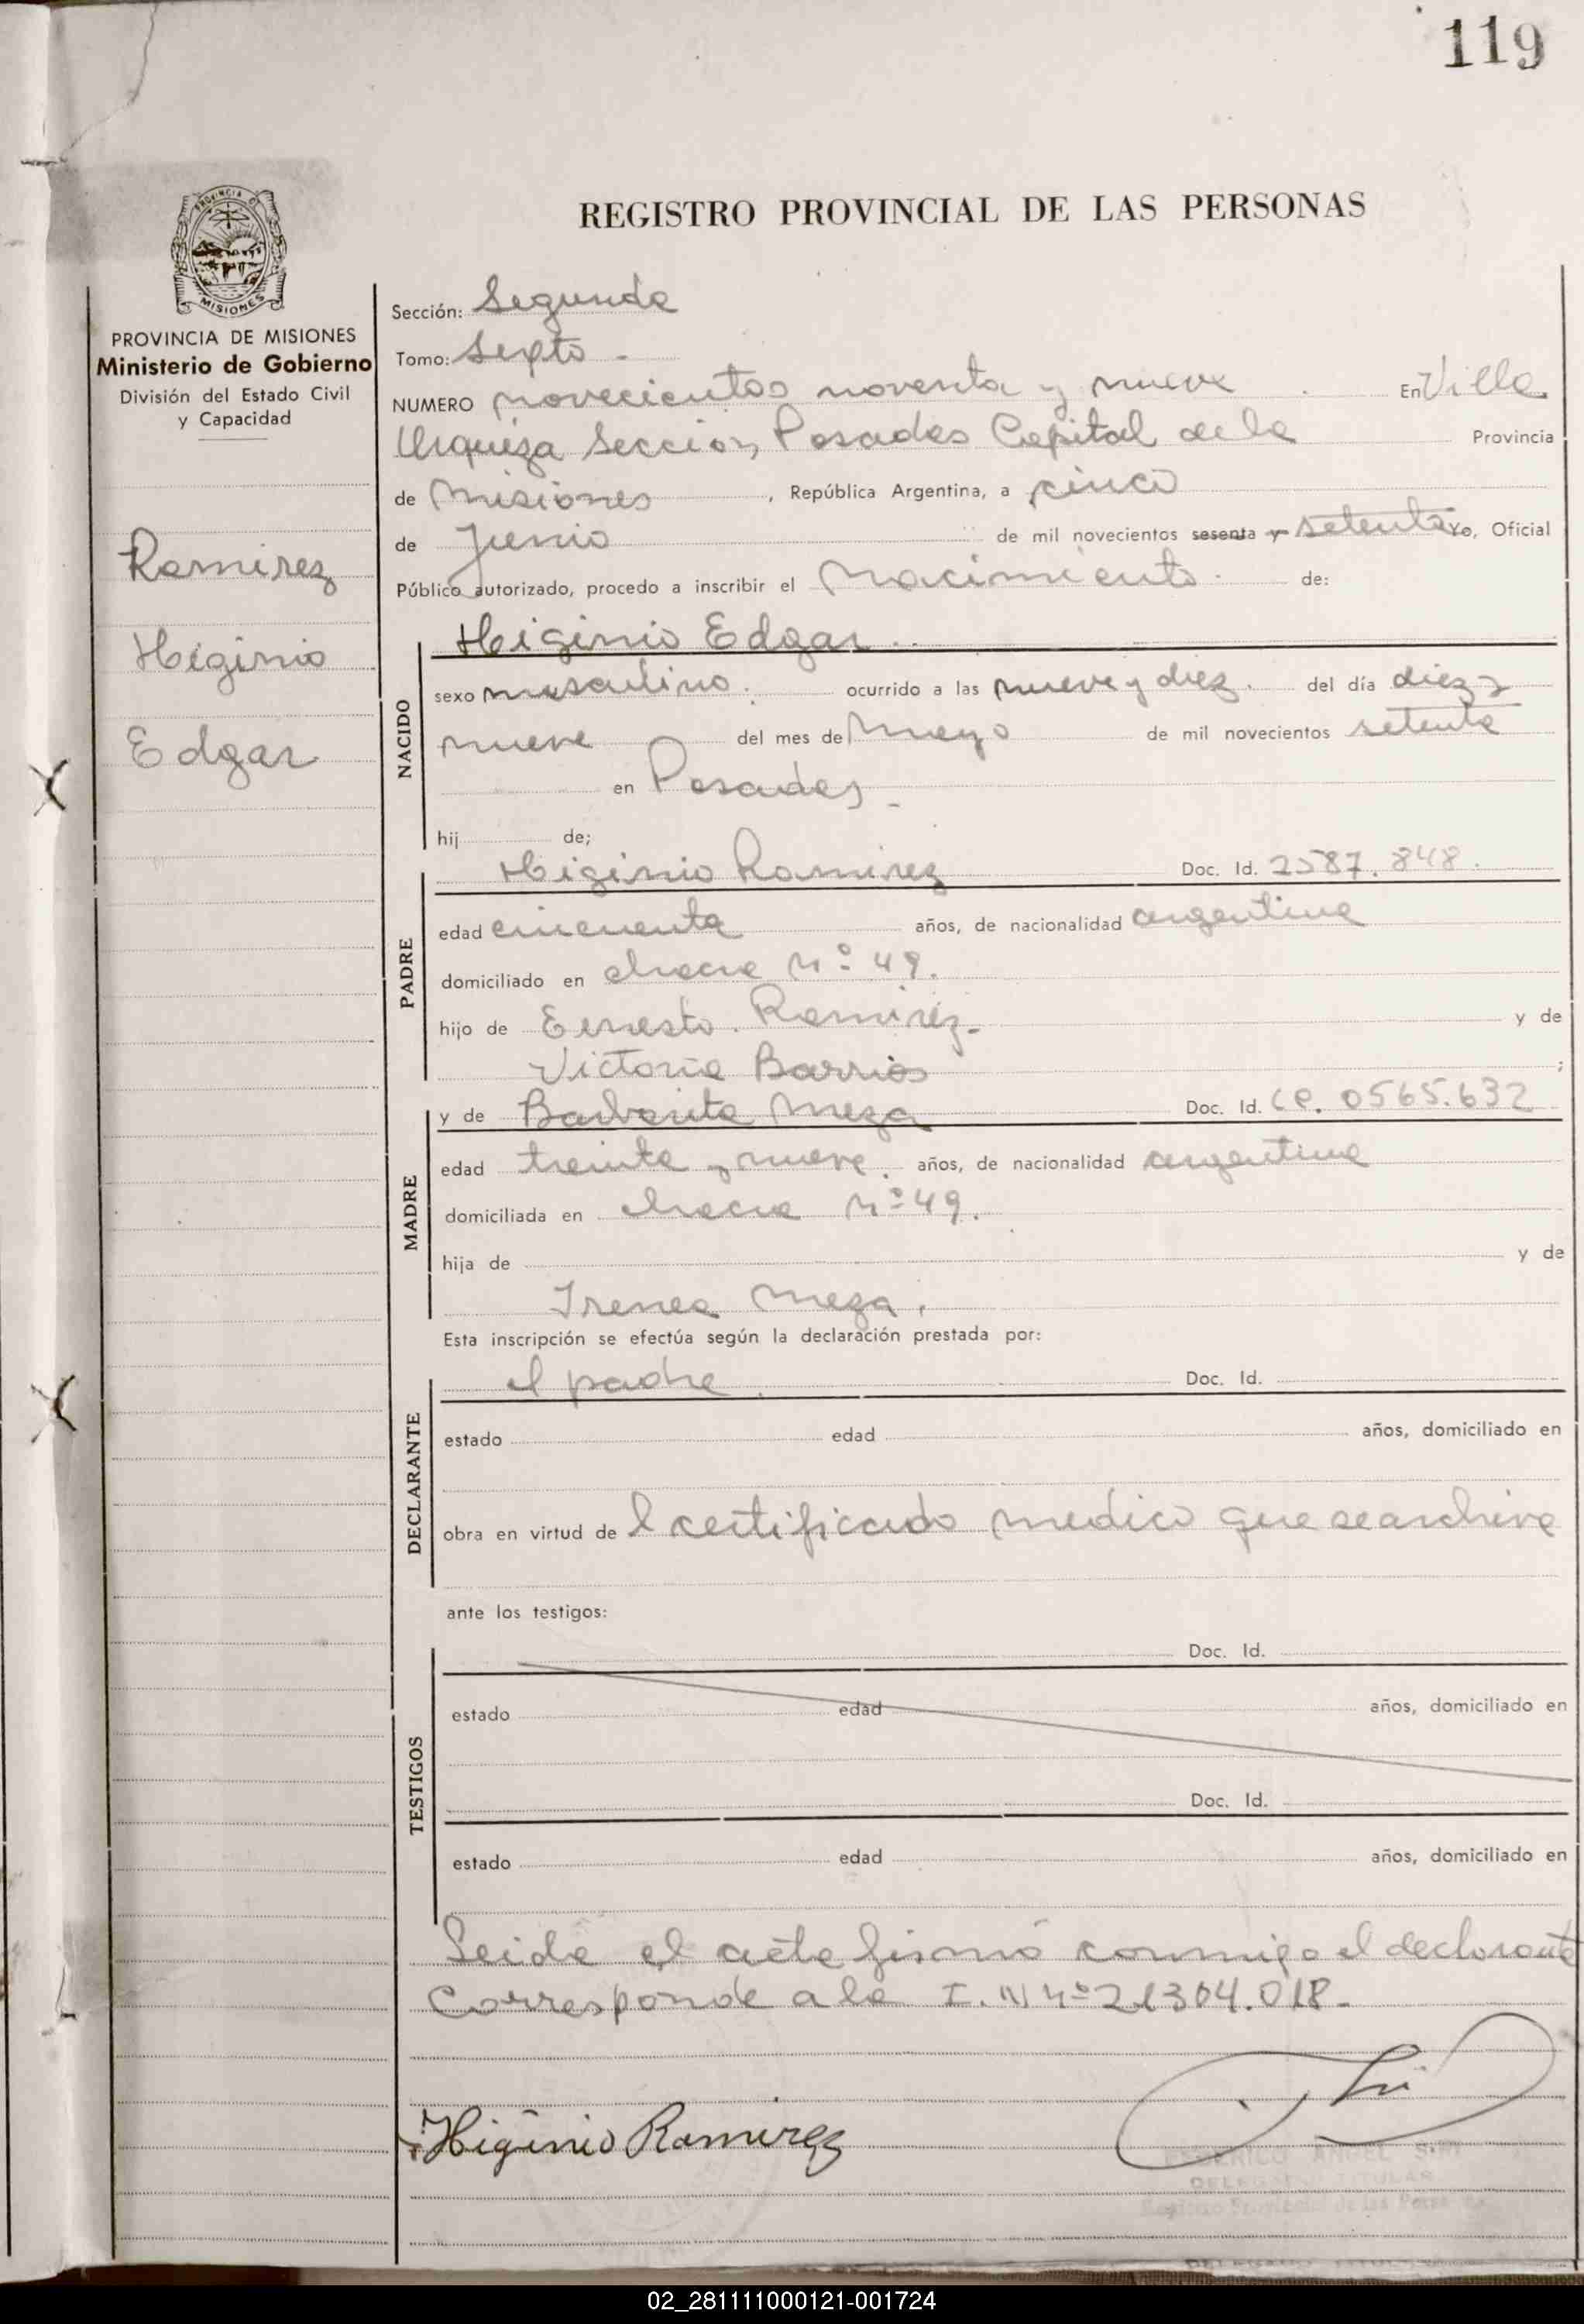 119
PROVINCIA DE
MISIONES
REGISTRO PROVINCIAL DE LAS PERSONAS
PROVINCIA DE MISIONES
Ministerio de Gobierno
División del Estado Civil
y Capacidad
Ramirez
Higinio
Edgar
Sección: Segunda
Tomo: Sexto -
NUMERO novecientos noventa y nueve. En Villa
Urquiza Seccion Posadas Capital de la Provincia
de Misiones, República Argentina, a cinco
de Junio de mil novecientos sesenta y setenta Yo, Oficial
Público autorizado, procedo a inscribir el Nacimiento. de:
NACIDO
Higinio Edgar..
sexo masculino. ocurrido a las nueve y diez. del día diez y
nueve del mes de mayo de mil novecientos setenta
en Posadas -
hij de;
PADRE
Higinio Ramirez Doc. Id. 2587.848.
edad cincuenta años, de nacionalidad argentina
domiciliado en chacra Nº 49.
hijo de Ernesto. Ramirez- y de
Victoria Barrios ;
MADRE
y de Barbarita Meza Doc. Id. CP. 0565.632
edad treinta y nueve. años, de nacionalidad argentina
domiciliada en chacra Nº 49.
hija de y de
Irenea Meza.
Esta inscripción se efectúa según la declaración prestada por:
DECLARANTE
el padre. Doc. Id.
estado edad años, domiciliado en
obra en virtud de l certificado medico que se archiva
ante los testigos:
TESTIGOS
Doc. Id.
estado edad años, domiciliado en
Doc. Id.
estado edad años, domiciliado en
Leida el acta firmó conmigo el declarante
Corresponde a la I. N Nº 21304.018-
Higinio Ramirez
ANGEL
TITULAR
02_281111000121-001724